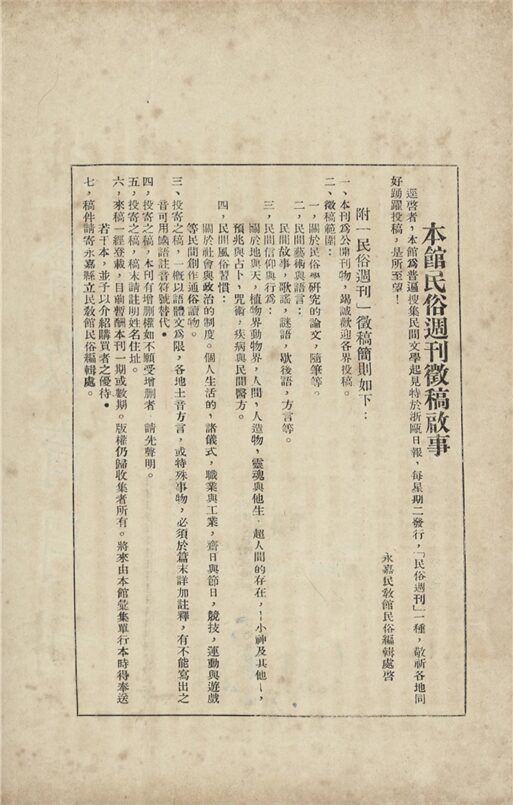 本館民俗週刊徵稿啟事
逕啓者，本館爲普遍搜集民間文學起見特於浙甌日報，每星期二發行，「民俗週刊」一種，敬祈各地同
好踴躍投稿，是所至望！
永嘉民敎館民俗編輯處啓
附「民俗週刊」徵稿簡則如下：
一、本刊爲公開刊物，竭誠歡迎各界投稿。
二、徵稿範圍：
一，關於民俗學研究的論文，隨筆等。
二，民間藝術與語言：
民間故事，歌謠，謎語，歇後語，方言等。
三，民間信仰與行爲：
關於地與天，植物界動物界，人間，人造物，靈魂與他生．超人間的存在，——小神及其他—，
預兆與占卜，咒術，疾病與民間醫方。
四，民間風俗習慣：
關於社會與政治的制度。個人生活的，諸儀式，職業與工業，齋日與節日，競技，運動與遊戲
等民間創作通俗讀物。
三、投寄之稿，一槪以語體文爲限，各地土音方言，或特殊事物，必須於篇末詳加註釋，有不能寫出之
音可用國語註音符號替代。
四，投寄之稿，本刊有增刪權如不願受增刪者 請先聲明。
五，投寄之稿，稿末請註明姓名住址。
六，來稿一經登載，目前暫酬本刊一期或數期。版權仍歸收集者所有。將來由本館彙集單行本時得奉送
若干本，並予以介紹購買者之優待。
七，稿件請寄永嘉縣立民敎館民俗編輯處。